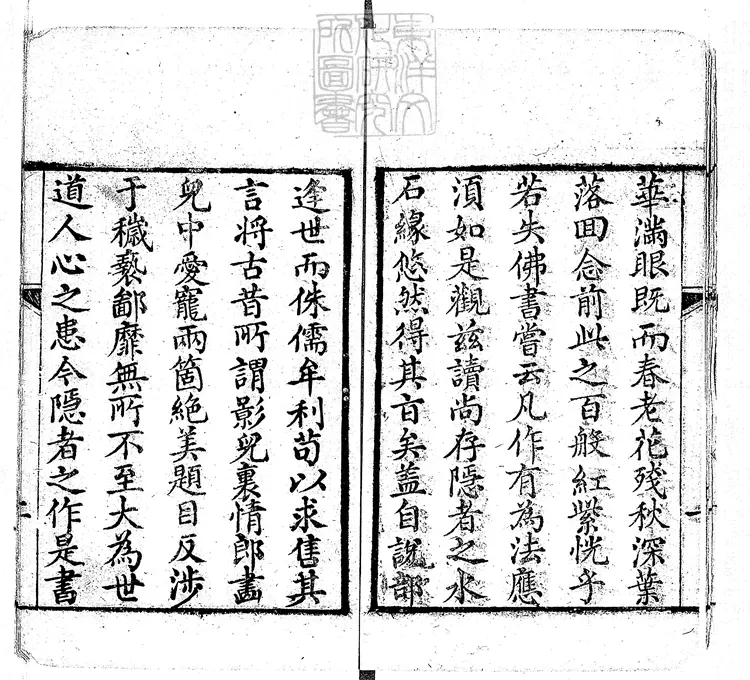 華滿眼既而春老花殘秋深葉
落回念前此之百般紅紫恍乎
若失佛書嘗云凡作有為法應
須如是觀茲讀尚存隱者之水
石緣悠然得其旨矣蓋自說部
逢世而侏儒牟利苟以求售其
言將古昔所謂影兒裏情郎畵
兒中愛寵兩箇絶美題目反涉
于穢褻鄙靡無所不至大為世
道人心之患今隱者之作是書
一
二